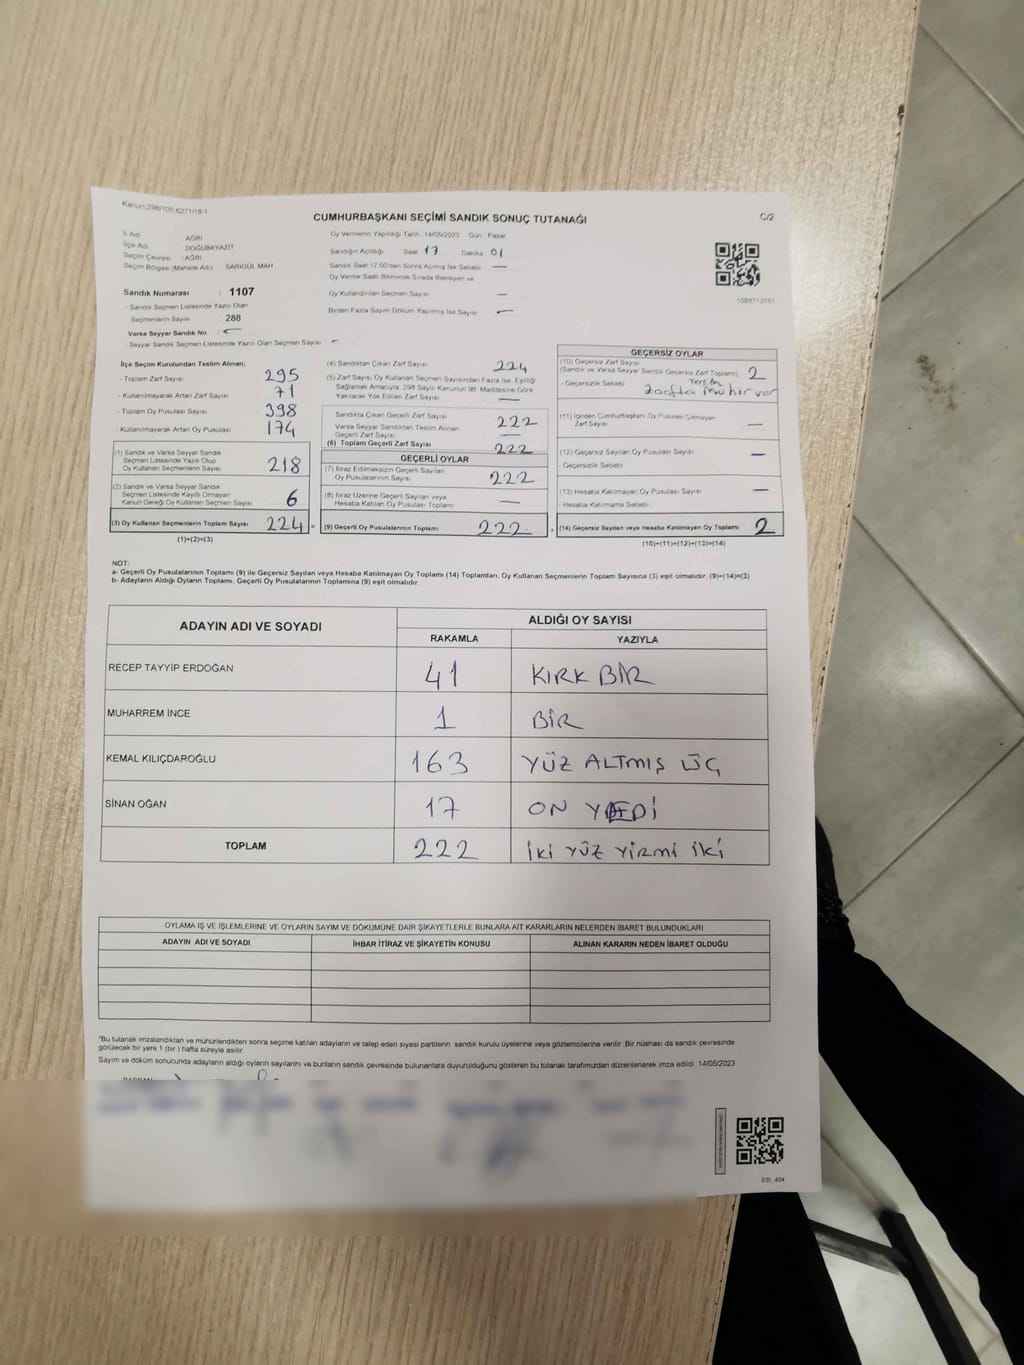 Kanun:298/105,6271/18-1
CUMHURBAŞKANI SEÇİMİ SANDIK SONUÇ TUTANAĞI
C/2
İl Adı : AĞRI
İlçe Adı : DOĞUBAYAZIT
Seçim Çevresi : AĞRI
Seçim Bölgesi (Mahalle Adı) SARIGÜL MAH
Sandık Numarası : 1107
- Sandık Seçmen Listesinde Yazılı Olan
Seçmenlerin Sayısı : 288
Varsa Seyyar Sandık No : —
- Seyyar Sandık Seçmen Listesinde Yazılı Olan Seçmen Sayısı : —
Oy Vermenin Yapıldığı Tarih : 14/05/2023 Gün : Pazar
Sandığın Açıldığı Saat 17 Dakika 01
Sandık Saat 17.00'den Sonra Açılmış İse Sebebi —
Oy Verme Saati Bitiminde Sırada Bekleyen ve
Oy Kullandırılan Seçmen Sayısı —
Birden Fazla Sayım Döküm Yapılmış İse Sayısı —
1093713751
İlçe Seçim Kurulundan Teslim Alınan;
- Toplam Zarf Sayısı 295
- Kullanılmayarak Artan Zarf Sayısı 71
- Toplam Oy Pusulası Sayısı 398
- Kullanılmayarak Artan Oy Pusulası 174
(1) Sandık ve Varsa Seyyar Sandık
Seçmen Listesinde Yazılı Olup
Oy Kullanan Seçmenlerin Sayısı 218
(2) Sandık ve Varsa Seyyar Sandık
Seçmen Listesinde Kaydı Olmayan
Kanun Gereği Oy Kullanan Seçmen Sayısı 6
(3) Oy Kullanan Seçmenlerin Toplam Sayısı 224 =
(1)+(2)=(3)
(4) Sandıktan Çıkan Zarf Sayısı 224
(5) Zarf Sayısı Oy Kullanan Seçmen Sayısından Fazla ise, Eşitliği
Sağlamak Amacıyla, 298 Sayılı Kanunun 98. Maddesine Göre
Yakılarak Yok Edilen Zarf Sayısı —
Sandıkta Çıkan Geçerli Zarf Sayısı 222
Varsa Seyyar Sandıktan Teslim Alınan
Geçerli Zarf Sayısı —
(6) Toplam Geçerli Zarf Sayısı 222
GEÇERLİ OYLAR
(7) İtiraz Edilmeksizin Geçerli Sayılan
Oy Pusulalarının Sayısı 222
(8) İtiraz Üzerine Geçerli Sayılan veya
Hesaba Katılan Oy Pusulası Toplamı —
(9) Geçerli Oy Pusulalarının Toplamı 222 +
GEÇERSİZ OYLAR
(10) Geçersiz Zarf Sayısı
(Sandık ve Varsa Seyyar Sandık Geçersiz Zarf Toplamı) 2
- Geçersizlik Sebebi : Tercih
Zarfta mühür var
(11) İçinden Cumhurbaşkanı Oy Pusulası Çıkmayan
Zarf Sayısı —
(12) Geçersiz Sayılan Oy Pusulası Sayısı —
- Geçersizlik Sebebi :
(13) Hesaba Katılmayan Oy Pusulası Sayısı —
- Hesaba Katılmama Sebebi :
(14) Geçersiz Sayılan veya Hesaba Katılmayan Oy Toplamı 2
(10)+(11)+(12)+(13)=(14)
NOT:
a- Geçerli Oy Pusulalarının Toplamı (9) ile Geçersiz Sayılan veya Hesaba Katılmayan Oy Toplamı (14) Toplamları, Oy Kullanan Seçmenlerin Toplam Sayısına (3) eşit olmalıdır. (9)+(14)=(3)
b- Adayların Aldığı Oyların Toplamı, Geçerli Oy Pusulalarının Toplamına (9) eşit olmalıdır.
ADAYIN ADI VE SOYADI
ALDIĞI OY SAYISI
RAKAMLA YAZIYLA
RECEP TAYYİP ERDOĞAN 41 KIRK BİR
MUHARREM İNCE 1 BİR
KEMAL KILIÇDAROĞLU 163 YÜZ ALTMIŞ ÜÇ
SİNAN OĞAN 17 ON YEDİ
TOPLAM 222 İKİ YÜZ YİRMİ İKİ
OYLAMA İŞ VE İŞLEMLERİNE VE OYLARIN SAYIM VE DÖKÜMÜNE DAİR ŞİKAYETLERLE BUNLARA AİT KARARLARIN NELERDEN İBARET BULUNDUKLARI
ADAYIN ADI VE SOYADI İHBAR İTİRAZ VE ŞİKAYETİN KONUSU ALINAN KARARIN NEDEN İBARET OLDUĞU
"Bu tutanak imzalandıktan ve mühürlendikten sonra seçime katılan adayların ve talep eden siyasi partilerin sandık kurulu üyelerine veya gözlemcilerine verilir. Bir nüshası da sandık çevresinde
görülecek bir yere 1 (bir ) hafta süreyle asılır.
Sayım ve döküm sonucunda adayların aldığı oyların sayılarını ve bunların sandık çevresinde bulunanlara duyurulduğunu gösteren bu tutanak tarafımızdan düzenlenerek imza edildi. 14/05/2023
SSI_404